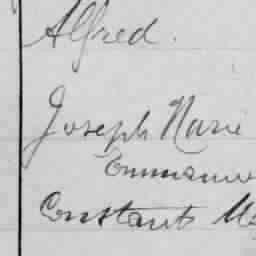 Alfred.
Joseph Marie
Emmanue
Constant Ma